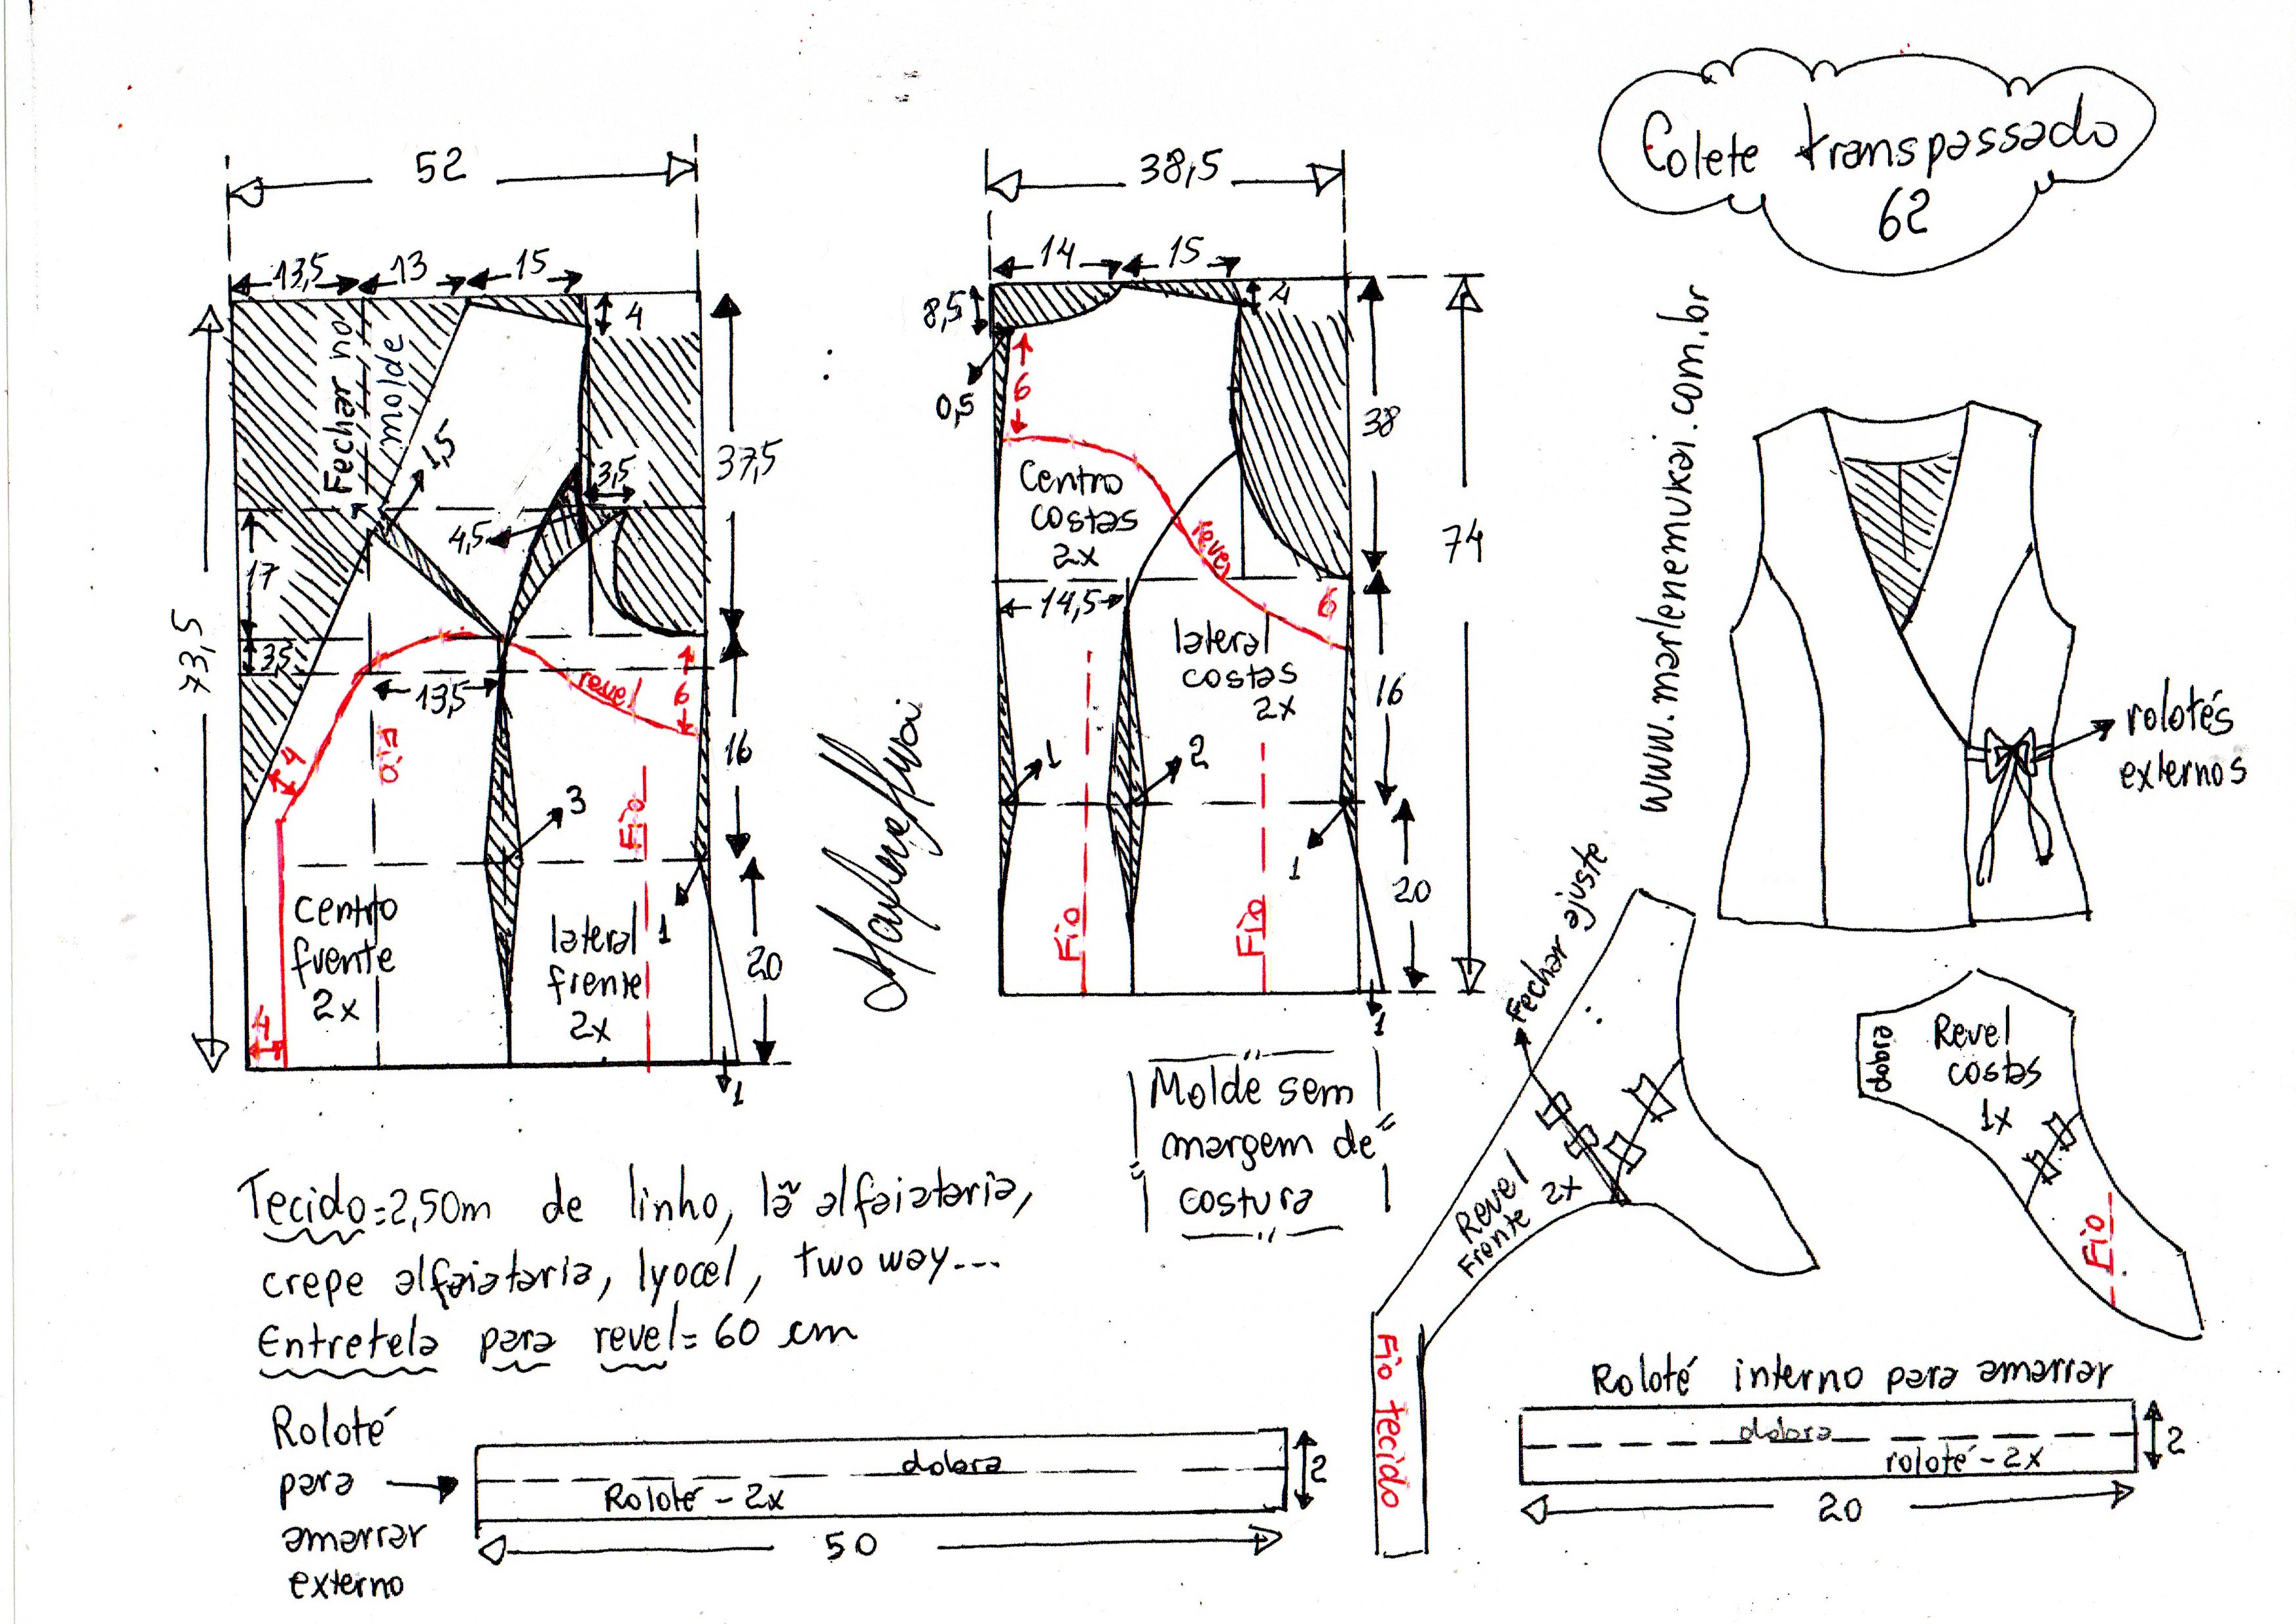 Colete transpassado
62
www.marlenemukai.com.br
52
13,5
13
15
4
Fechar no
molde
1,5
3,5
4,5
37,5
17
3,5
73,5
13,5
revel
6
4
16
3
Fio
1
centro
frente
2x
lateral
frente
2x
20
4
1
38,5
14
15
8,5
4
0,5
6
38
74
Centro
costas
2x
revel
6
14,5
lateral
costas
2x
16
1
2
1
Fio
Fio
20
1
rolotés
externos
Fechar ajuste
Revel
Frente 2x
Fio tecido
dobra
Revel
costas
1x
Fio
Molde sem
margem de
costura
Tecido=2,50m de linho, lã alfaiataria,
crepe alfaiataria, lyocel, two way...
Entretela para revel=60 cm
Roloté
para
amarrar
externo
dobra
Roloté - 2x
2
50
Roloté interno para amarrar
dobra
roloté - 2x
2
20